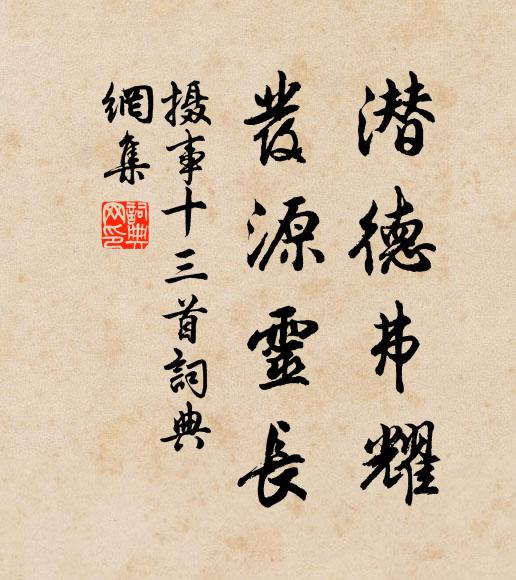 潛德弗耀
發源靈長
摄事十三首詞典
網集
詞典網印